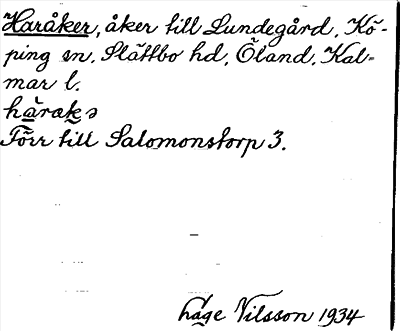 Haråker, åker till Lundegård, Kö-
ping sn, Slättbo hd, Öland, Kal-
mar l.
hàrakə
Förr till Salomonstorp 3.
håge Nilsson 1934